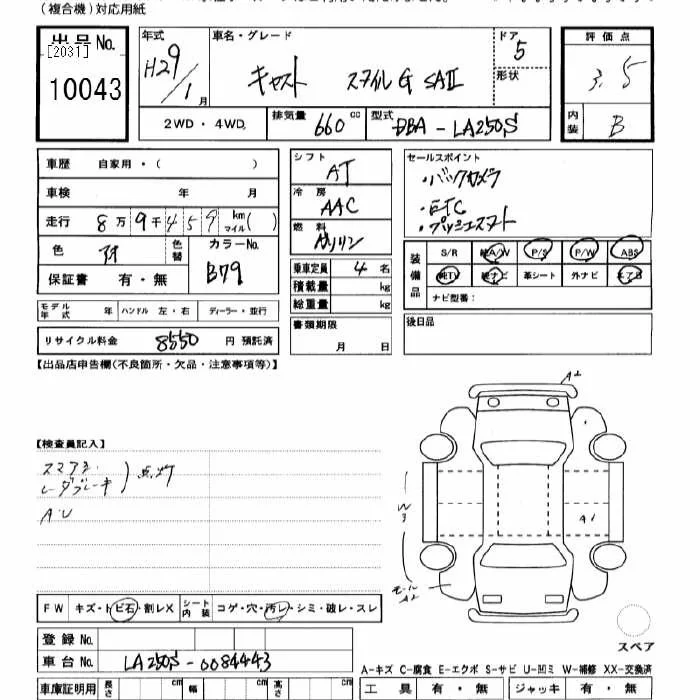 (複合機)対応用紙
出品No.
[2031]
10043
年式
H29/1月
車名・グレード
キャスト スタイルG SAII
ドア
5
形状
評価点
3.5
内装
B
2WD・4WD
排気量
660cc
型式
DBA-LA250S
車歴 自家用・( )
車検 年 月
走行 8万9千459 km マイル( )
色
色替
カラーNo.
B79
保証書 有・無
モデル年式 年 ハンドル 左・右 ディーラー・並行
リサイクル料金 8550 円 預託済
シフト
AT
冷房
AAC
燃料
ガソリン
乗車定員 4名
積載量 kg
総重量 kg
書類期限
月 日
セールスポイント
・バックカメラ
・ETC
・プッシュスタート
装備品
S/R 純A/W P/S P/W ABS
純TV 純ナビ 革シート 外ナビ エアB
ナビ型番:
後日品
【出品店申告欄(不良箇所・欠品・注意事項等)】
【検査員記入】
スマアシ
レーダブレーキ
点灯
A.U
A2
W3
A1
モール
A2
スペア
FW キズ・トビ石・割レX シート内装 コゲ・穴・汚レ・シミ・破レ・スレ
登録No.
車台No. LA250S-0084443
A-キズ C-腐食 E-エクボ S-サビ U-凹ミ W-補修 XX-交換済
車庫証明用 長さ cm 幅 cm 高さ cm
工具 有・無 ジャッキ 有・無